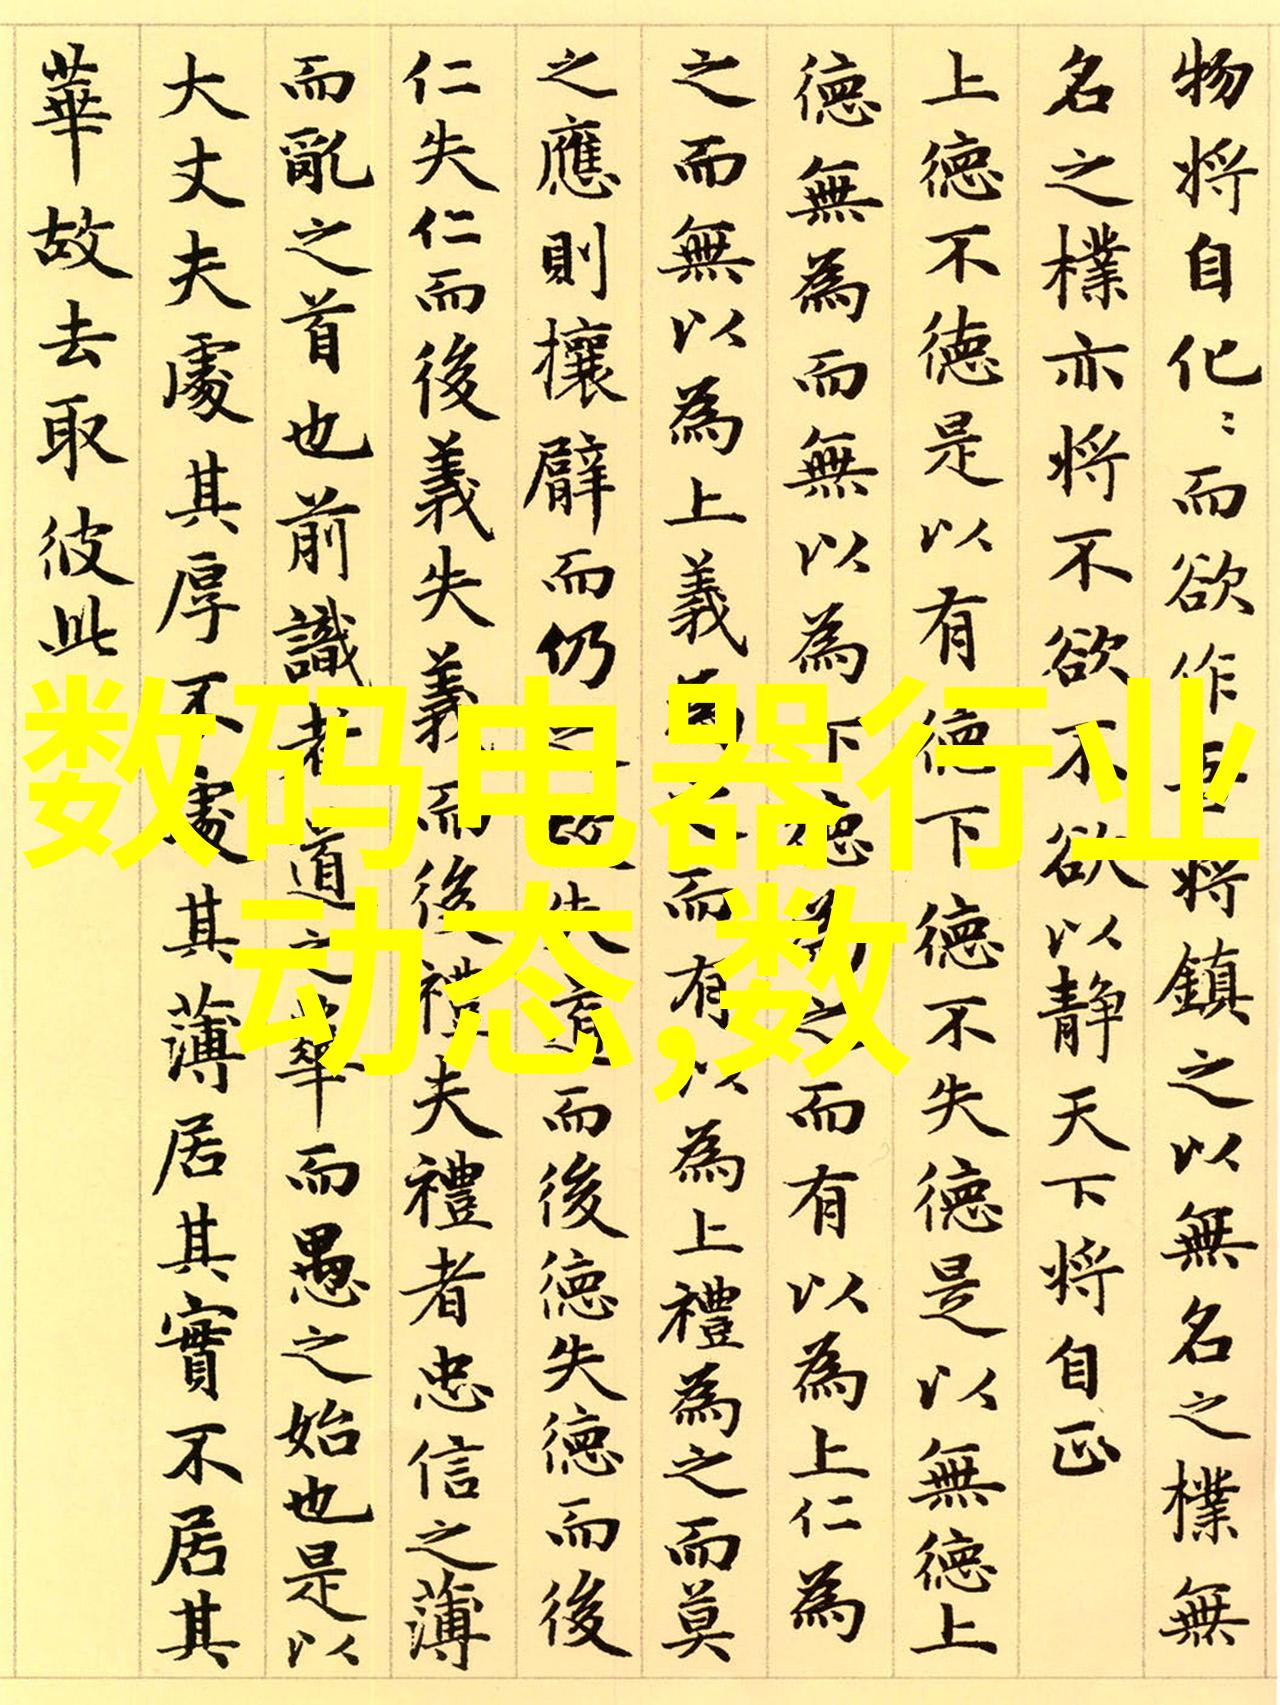 物将自化〻而欲作吾将鎮之以無名之樸無
名之樸亦将不欲不欲以静天下将自正
上徳不徳是以有徳下徳不失徳是以無徳上
徳無為而無以為下徳為之而有以為上仁為
之而無以為上義為之而有以為上禮為之而莫
之應則攘臂而仍之故失道而後徳失徳而後
仁失仁而後義失義而後禮夫禮者忠信之薄
而亂之首也前識者道之華而愚之始也是以
大丈夫處其厚不處其薄居其實不居其
華故去取彼此
数码电器行业
动态,数